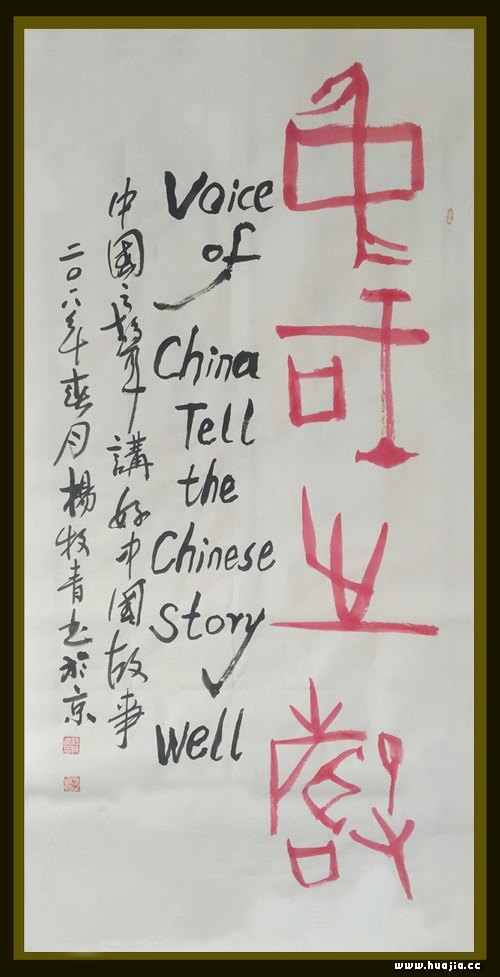 中國之聲
Voice
of
China
Tell
the
Chinese
Story
well
中國之聲講好中國故事
二〇一八年 月楊牧青书於京
www.huajia.cc